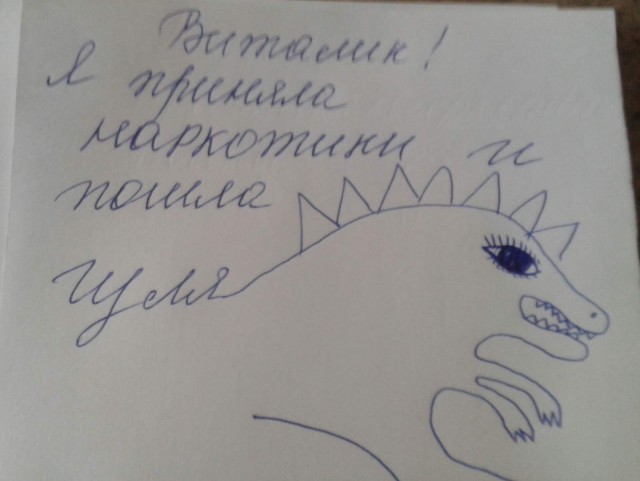 Виталик!
Я приняла
наркотики и
пошла
гуля